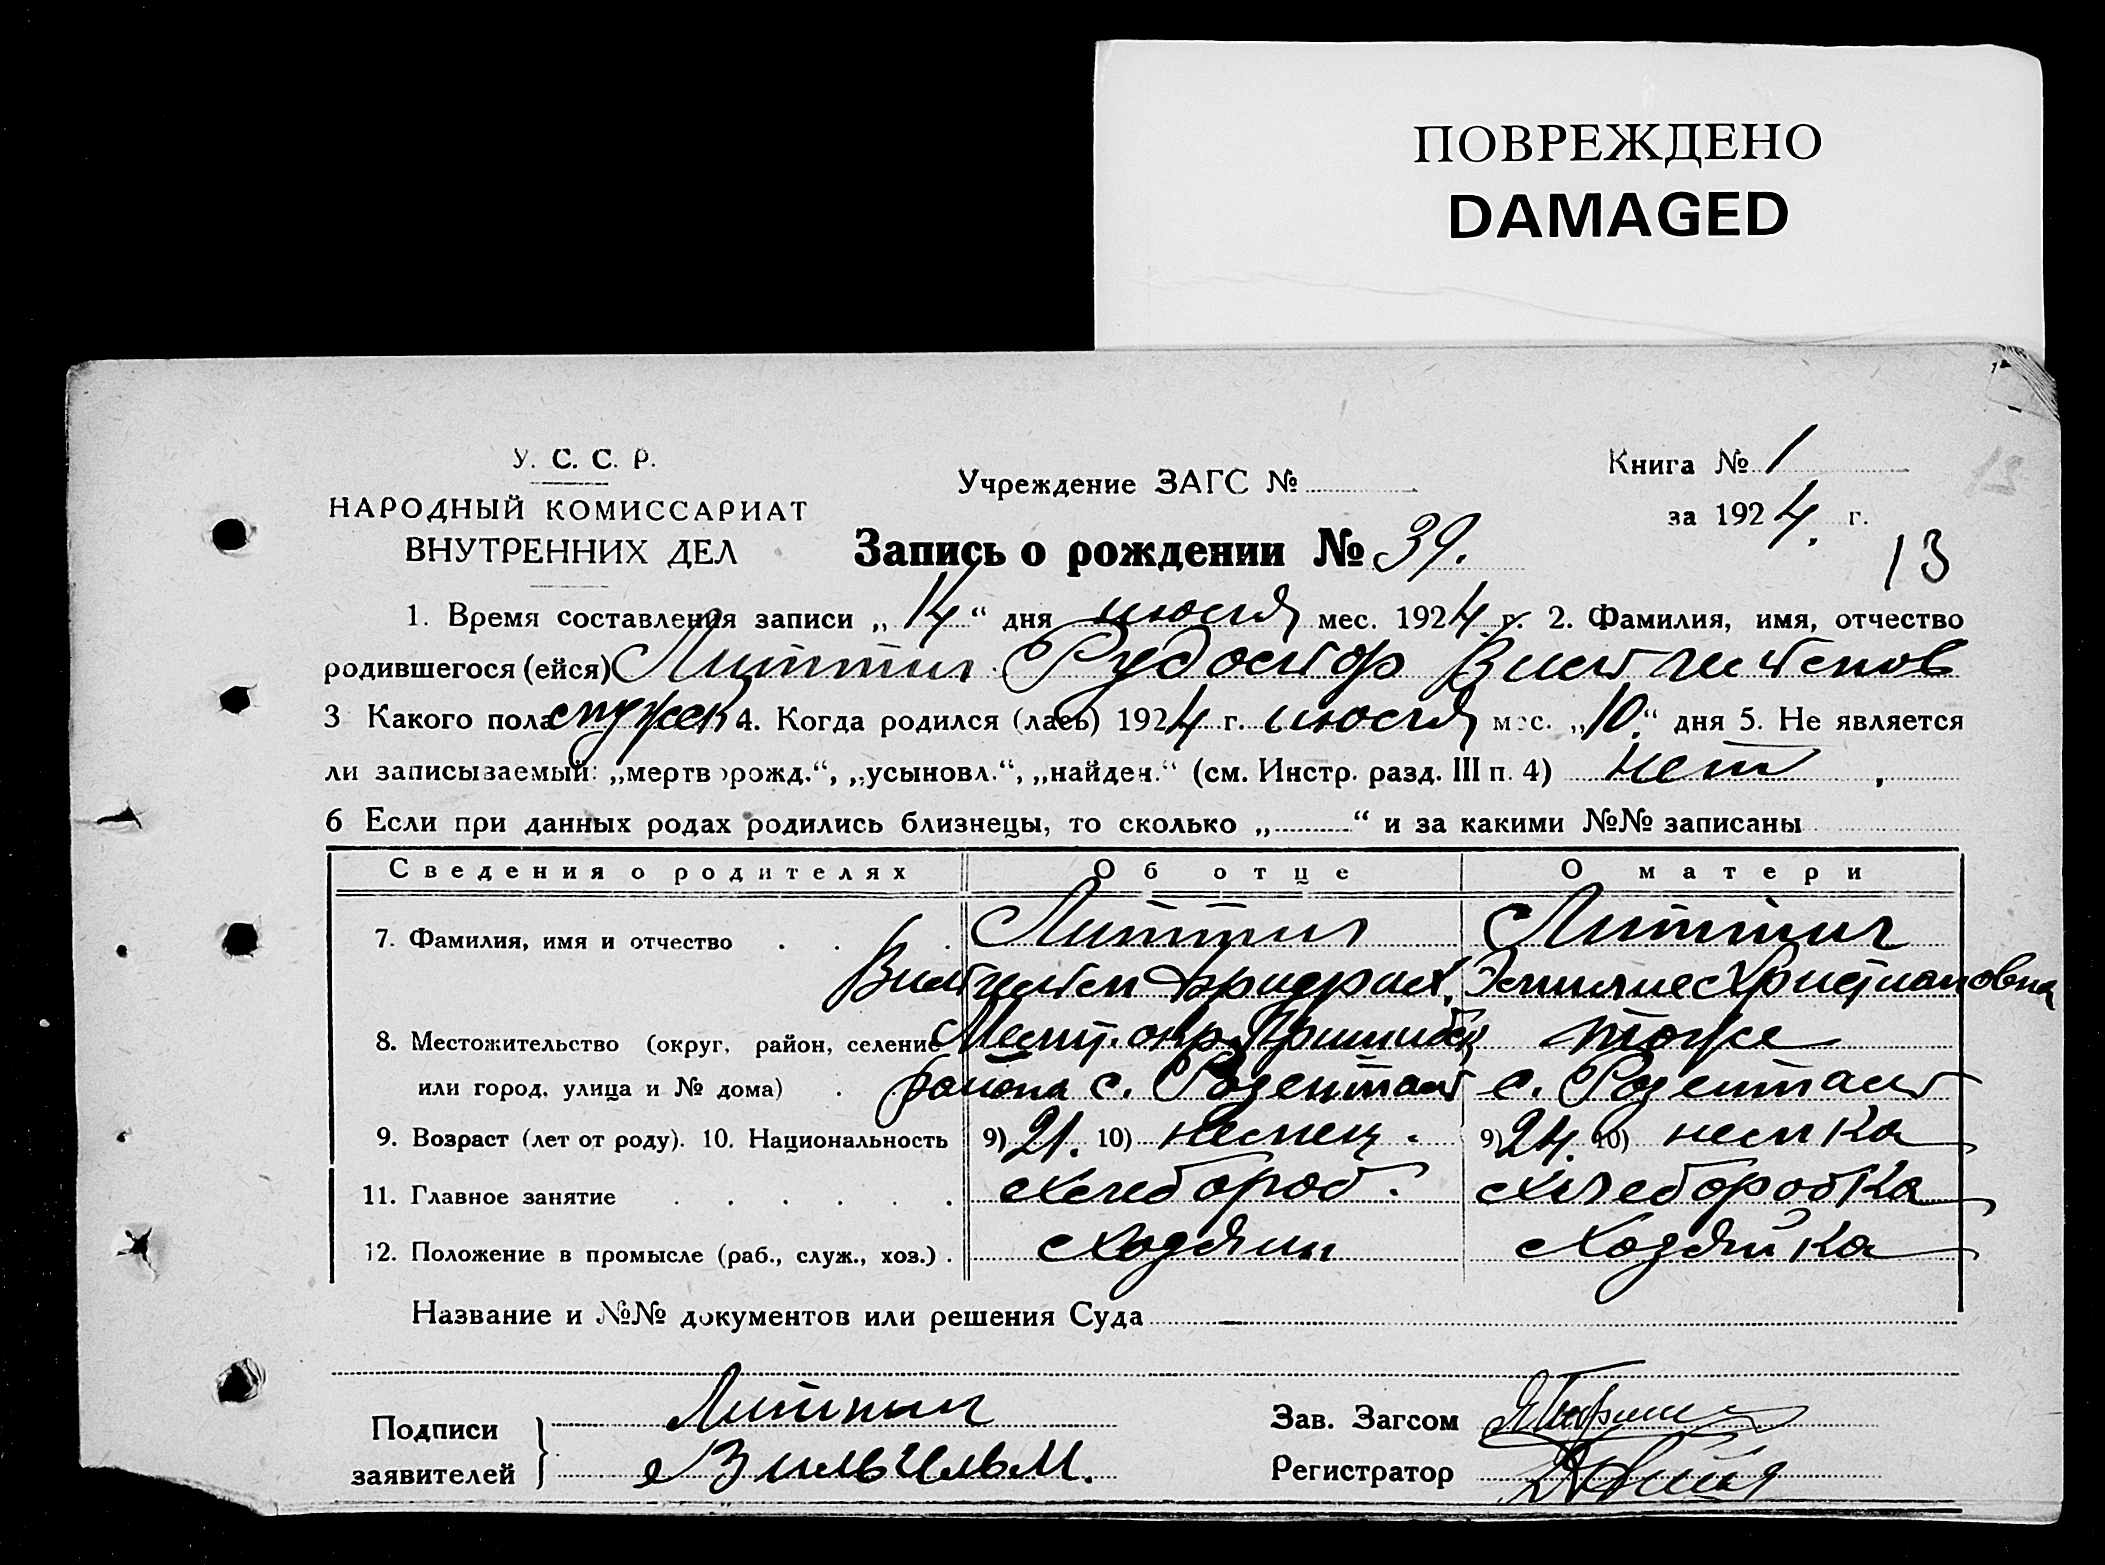 ПОВРЕЖДЕНО
DAMAGED
У. С. С. Р.
НАРОДНЫЙ КОМИССАРИАТ
ВНУТРЕННИХ ДЕЛ
Учреждение ЗАГС №
Книга № 1
за 1924 г.
13
Запись о рождении № 39.
1. Время составления записи „14“ дня июля мес. 1924 г. 2. Фамилия, имя, отчество
родившегося (ейся) Литтиг Рудольф Вильгельмов
3 Какого пола мужск 4. Когда родился (лась) 1924 г. июля мес. „10.“ дня 5. Не является
ли записываемый: „мертворожд.“, „усыновл.“, „найден.“ (см. Инстр. разд. III п. 4) нет
6 Если при данных родах родились близнецы, то сколько „ “ и за какими №№ записаны
Сведения о родителях Об отце О матери
7. Фамилия, имя и отчество Литтиг Литтиг
Вильгельм Фридрих. Эмилие Христиановна
8. Местожительство (округ, район, селение Мелит. окр. Пришибск тоже
или город, улица и № дома) района с. Розенталь с. Розенталь
9. Возраст (лет от роду). 10. Национальность 9) 21. 10) немец. 9) 24. 10) немка
11. Главное занятие Хлебороб. Хлеборобка
12. Положение в промысле (раб., служ., хоз.) Хозяин Хозяйка
Название и №№ документов или решения Суда —
Подписи Литтиг Зав. Загсом
заявителей Вильгельм. Регистратор